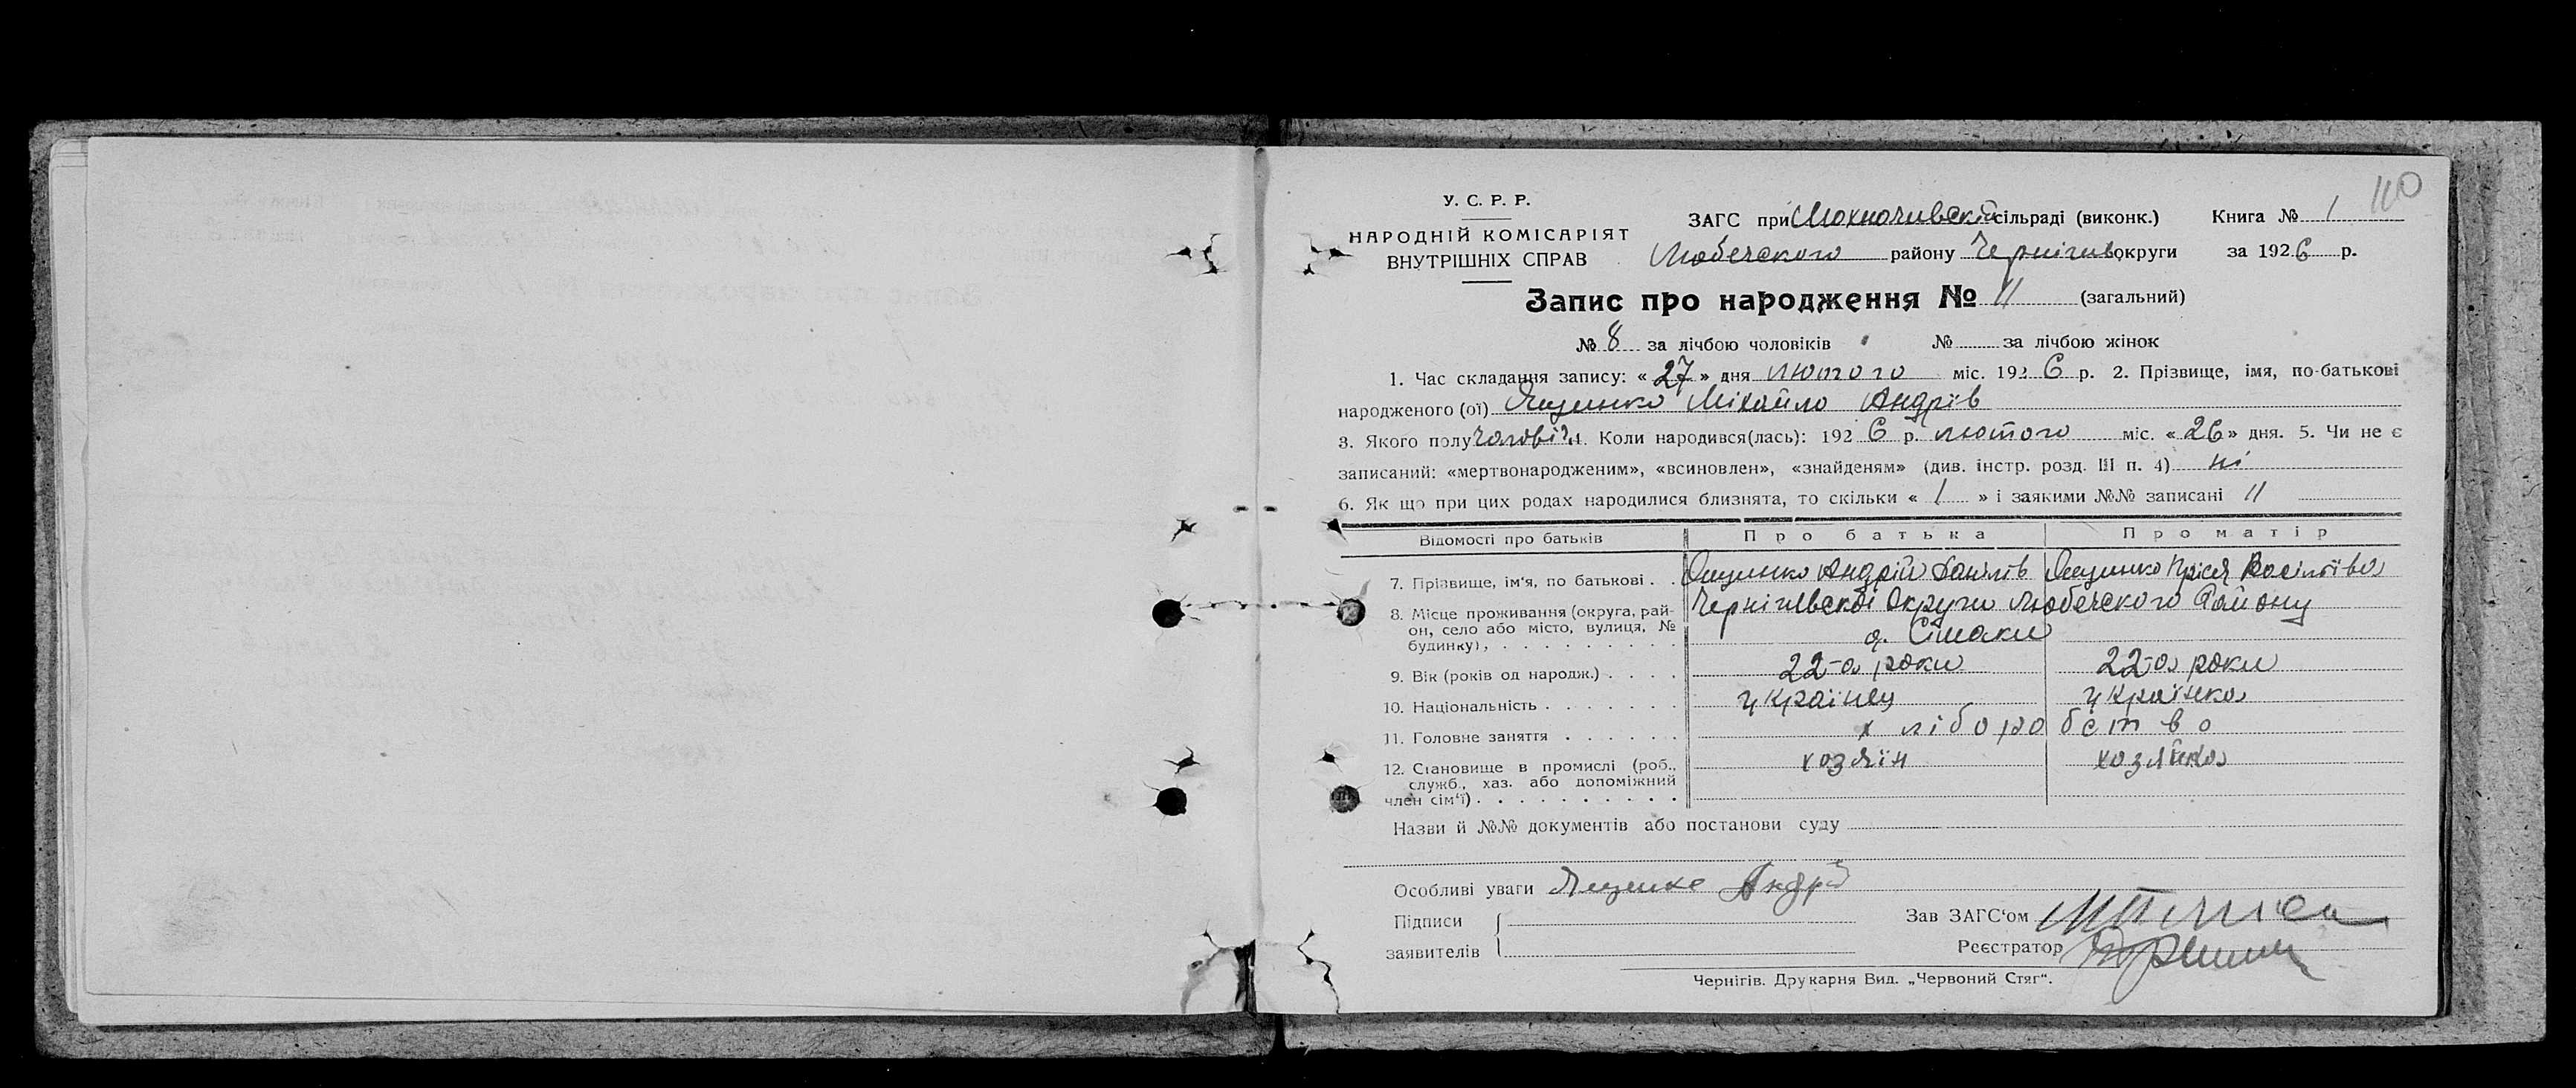 110
У. С. Р. Р.
НАРОДНІЙ КОМІСАРІЯТ
ВНУТРІШНІХ СПРАВ
ЗАГС при Мохначивскій сільраді (виконк.) Книга № 1
Любечского району Чернігив округи за 1926 р.
Запис про народження № 11 (загальний)
№ 8 за лічбою чоловіків № за лічбою жінок
1. Час складання запису: «27» дня лютого міс. 1926 р. 2. Прізвище, імя, по-батькові
народженого (ої) Ященко Міхайло Андрїв
3. Якого полу чоловіч 4. Коли народився(лась): 1926 р. лютого міс. «26» дня. 5. Чи не є
записаний: «мертвонародженим», «всиновлен», «знайденям» (див. інстр. розд. III п. 4) ні
6. Як що при цих родах народилися близнята, то скільки « 1 » і заякими №№ записані 11
Відомості про батьків Про батька Про матір
7. Прізвище, ім'я, по батькові . . Ященко Андрій Данілів Ященко Пріся Васільївна
8. Місце проживання (округа, рай- Чернігивскої Округи Любечского Району
он, село або місто, вулиця, №
будинку), . . . . . . . . . . Сімаки
9. Вік (років од народж.) . . . . 22-а роки 22-а роки
10. Національність . . . . . . . українец українка
11. Головне заняття . . . . . . хліборобство
12. Становище в промислі (роб., хозяїн хозяйка
служб., хаз. або допоміжний
член сім'ї) . . . . . . . . . .
Назви й №№ документів або постанови суду
Особливі уваги Ященко Андрій
Підписи
заявителів
Зав ЗАГС'ом
Реєстратор
Чернігів. Друкарня Вид. „Червоний Стяг".